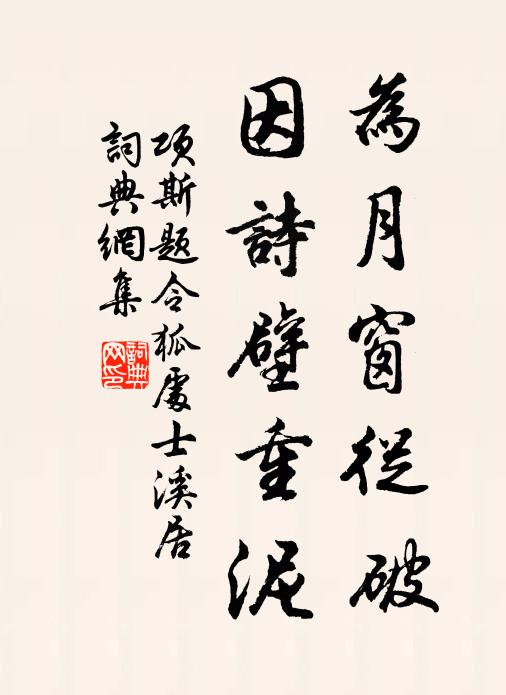 為月窗從破
因詩壁重泥
項斯題令狐處士溪居
詞典網集
詞典网印